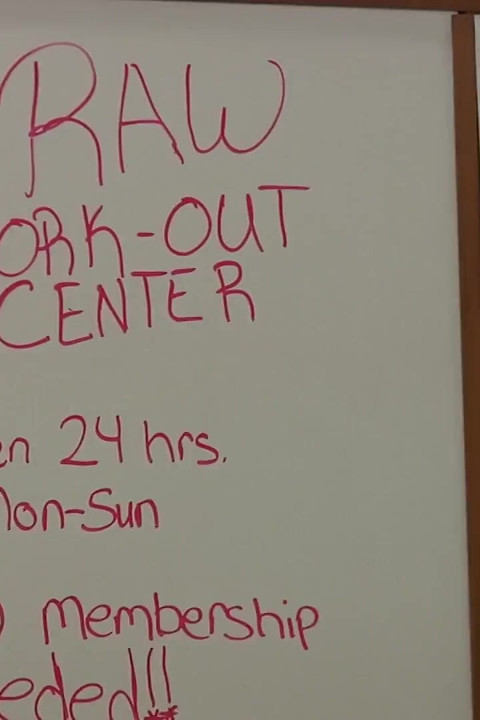 RAW
ORK-OUT
CENTER
en 24 hrs.
Mon-Sun
Membership
eded!!